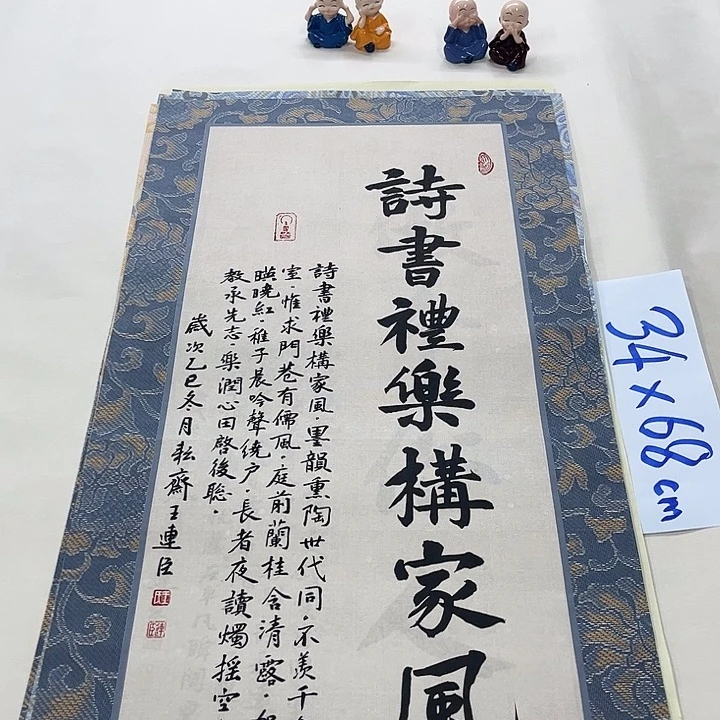 詩書禮樂構家風
詩書禮樂構家風·墨韻熏陶世代同·不羨千
室·惟求門巷有儒風·庭前蘭桂含清露·
暎曉紅·稚子晨吟聲繞户·長者夜讀燭搖空
教承先志·樂潤心田啓後聰·
歲次乙巳冬月
齋王連臣
34×68cm